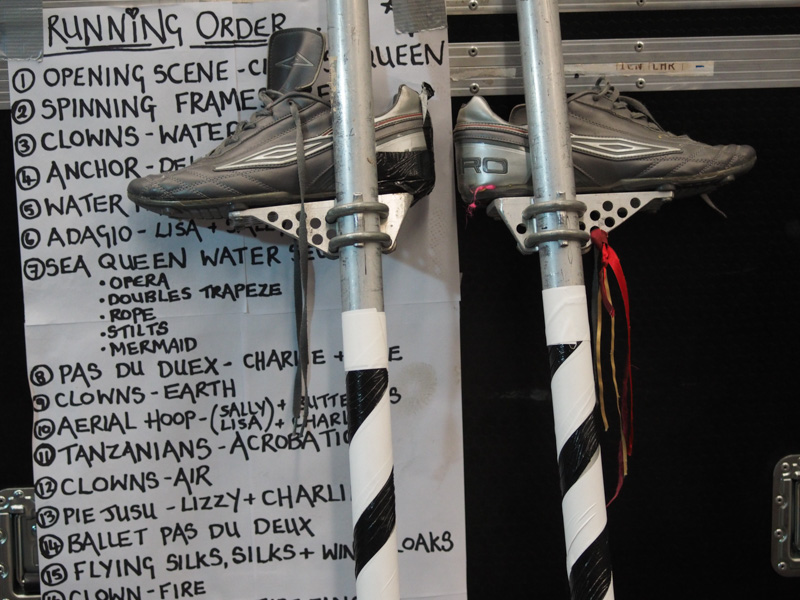 RUNNING ORDER
① OPENING SCENE - QUEEN
② SPINNING FRAME
③ CLOWNS - WATER
④ ANCHOR -
⑤ WATER
⑥ ADAGIO - LISA + SALLY
⑦ SEA QUEEN WATER
• OPERA
• DOUBLES TRAPEZE
• ROPE
• STILTS
• MERMAID
⑧ PAS DU DUEX - CHARLIE +
⑨ CLOWNS - EARTH
⑩ AERIAL HOOP - (SALLY) +
(LISA) +
⑪ TANZANIANS - ACROBATIC
⑫ CLOWNS - AIR
⑬ PIE JUSU - LIZZY + CHARLI
⑭ BALLET PAS DU DEUX
⑮ FLYING SILKS, SILKS + WIN LOAKS
CLOWN - FIRE
RO